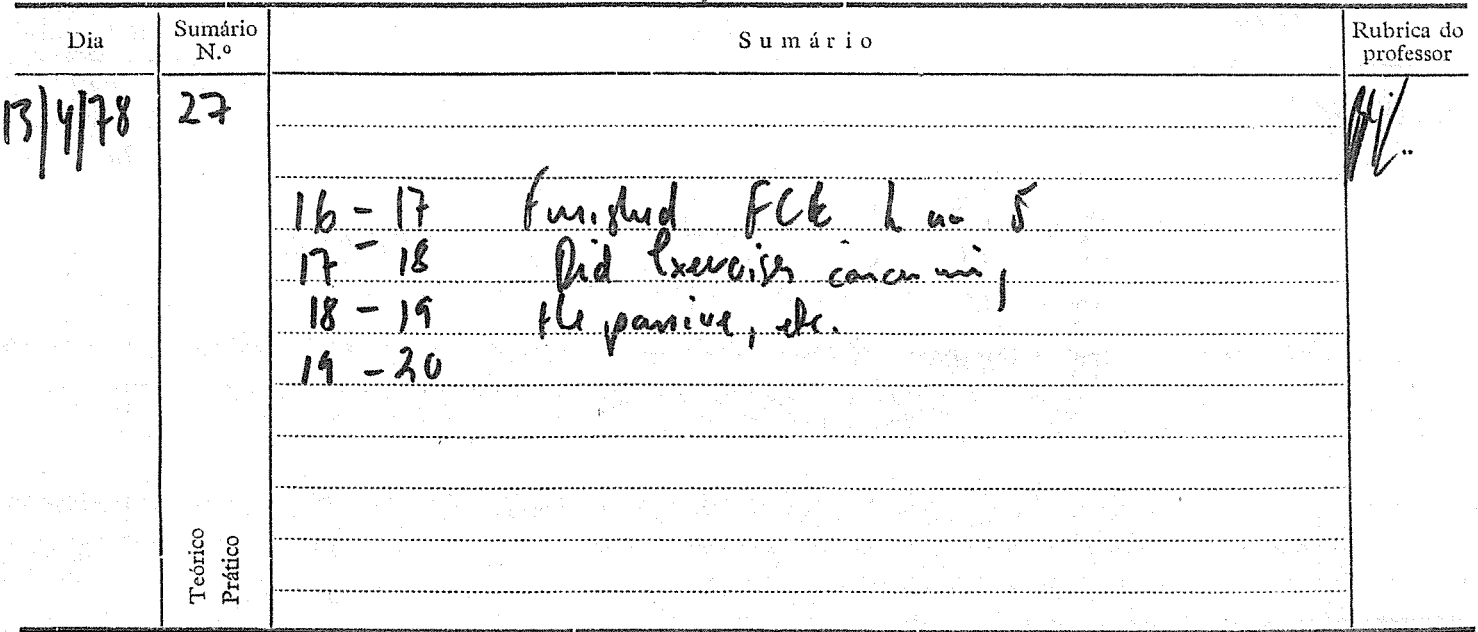 Dia
Sumário N.º
Sumário
Rubrica do professor
13/4/78
27
16 - 17 Finished FCE no 5
17 - 18 Did Exercises concerning
18 - 19 the passive, etc.
19 - 20
Teórico
Prático